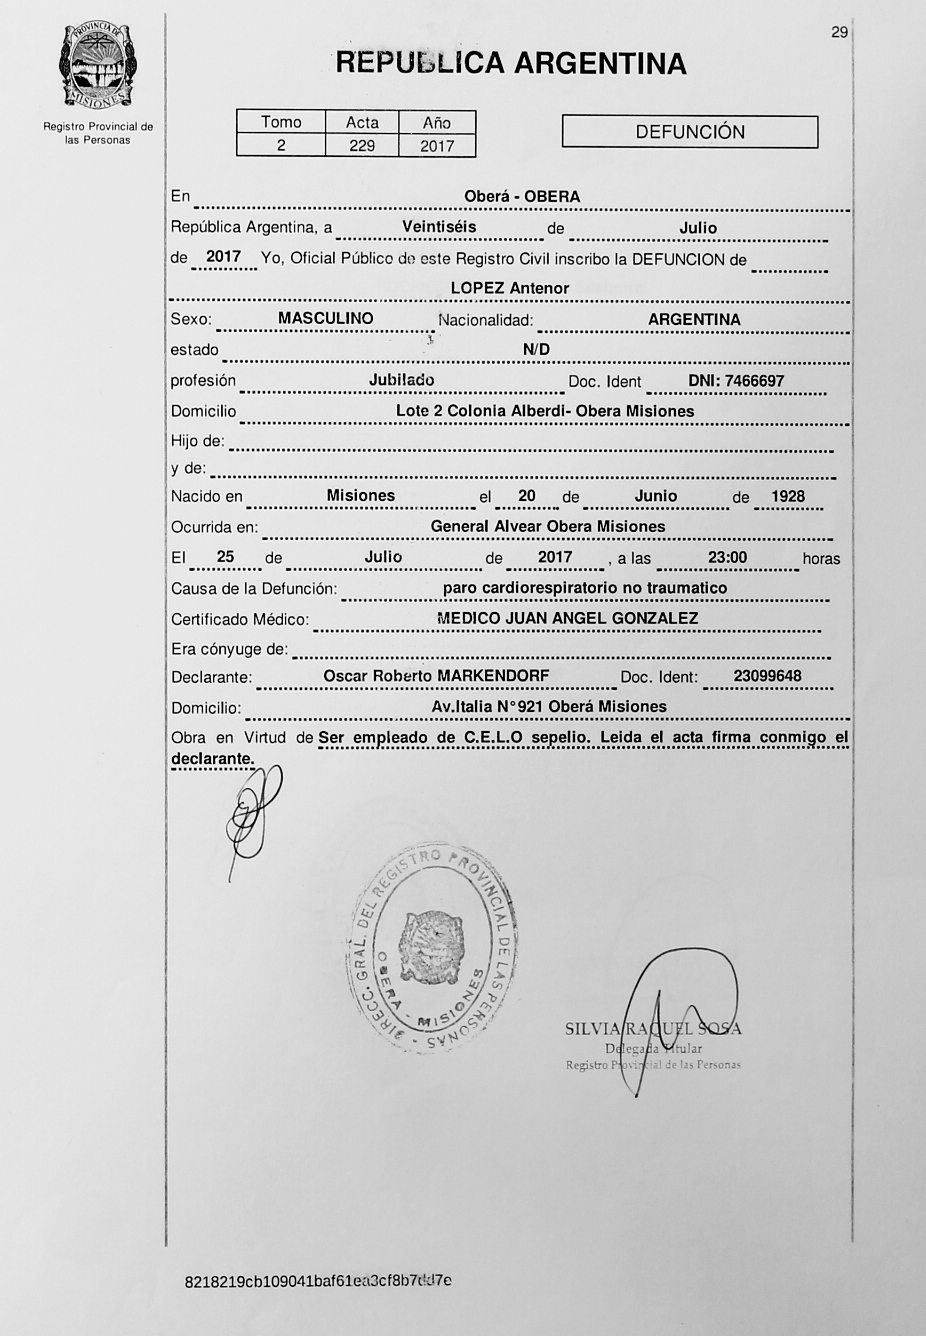 29
PROVINCIA DE
MISIONES
Registro Provincial de
las Personas
REPUBLICA ARGENTINA
Tomo Acta Año
2 229 2017
DEFUNCIÓN
En Oberá - OBERA
República Argentina, a Veintiséis de Julio
de 2017 Yo, Oficial Público de este Registro Civil inscribo la DEFUNCION de
LOPEZ Antenor
Sexo: MASCULINO Nacionalidad: ARGENTINA
estado N/D
profesión Jubilado Doc. Ident DNI: 7466697
Domicilio Lote 2 Colonia Alberdi- Obera Misiones
Hijo de:
y de:
Nacido en Misiones el 20 de Junio de 1928
Ocurrida en: General Alvear Obera Misiones
El 25 de Julio de 2017 , a las 23:00 horas
Causa de la Defunción: paro cardiorespiratorio no traumatico
Certificado Médico: MEDICO JUAN ANGEL GONZALEZ
Era cónyuge de:
Declarante: Oscar Roberto MARKENDORF Doc. Ident: 23099648
Domicilio: Av.Italia N°921 Oberá Misiones
Obra en Virtud de Ser empleado de C.E.L.O sepelio. Leida el acta firma conmigo el
declarante.
DIRECC. GRAL. DEL REGISTRO PROVINCIAL DE LAS PERSONAS -
OBERA - MISIONES
SILVIA RAQUEL SOSA
Delegada Titular
Registro Provincial de las Personas
8218219cb109041baf61ea3cf8b7dd7e